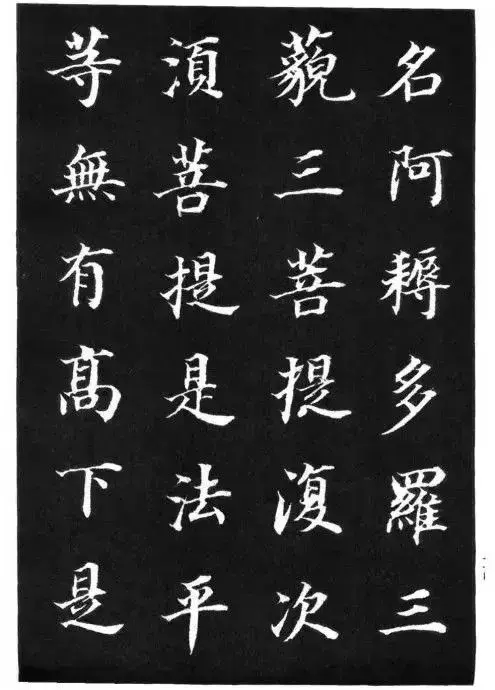 名阿耨多羅三
藐三菩提復次
須菩提是法平
等無有高下是